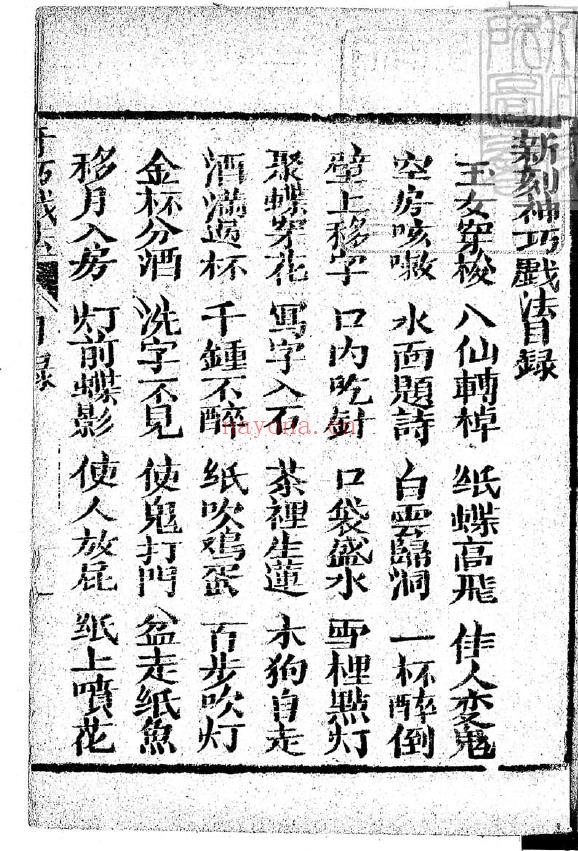 新刻神巧戲法目録
玉女穿梭 八仙轉棹 纸蝶高飛 佳人变鬼
空房咳嗽 水面題詩 白雲歸洞 一杯醉倒
壁上移字 口内吃針 口袋盛水 雪裡點灯
聚蝶穿花 寫字入石 茶裡生蓮 木狗自走
酒滿過杯 千鍾不醉 纸吹鸡蛋 百步吹灯
金杯分酒 洗字不見 使鬼打門 盆走纸魚
移月入房 灯前蝶影 使人放屁 纸上噴花
目録
nayona.cn